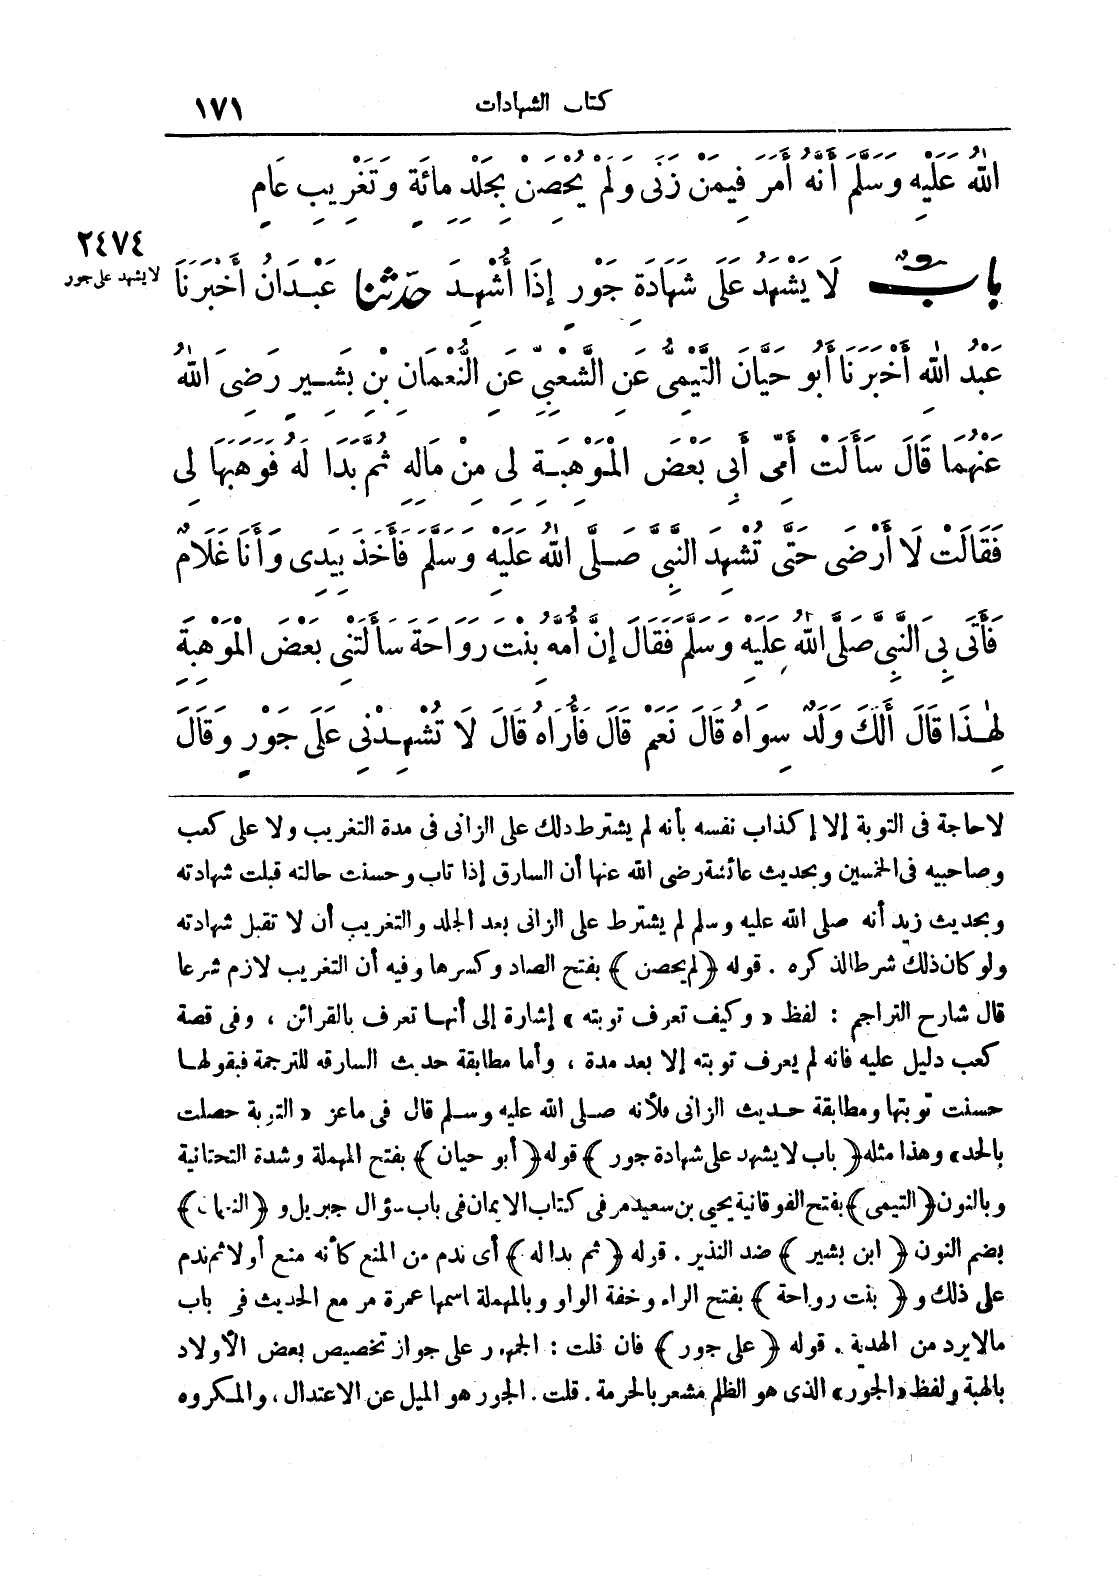 كتاب الشهادات
١٧١
اللهُ عَلَيْهِ وَسَلَّمَ أَنَّهُ أَمَرَ فِيمَنْ زَنَى وَلَمْ يُحْصَنْ بِجَلْدِ مِائَةٍ وَتَغْرِيبِ عَامٍ
٢٤٧٤
لا يشهد على جور
بابٌ لَا يَشْهَدُ عَلَى شَهَادَةِ جَوْرٍ إِذَا أُشْهِدَ حَدَّثَنَا عَبْدَانُ أَخْبَرَنَا
عَبْدُ اللهِ أَخْبَرَنَا أَبُو حَيَّانَ التَّيْمِىُّ عَنِ الشَّعْبِىِّ عَنِ النُّعْمَانِ بْنِ بَشِيرٍ رَضِىَ اللهُ
عَنْهُمَا قَالَ سَأَلَتْ أُمِّى أَبِى بَعْضَ الْمَوْهِبَةِ لِى مِنْ مَالِهِ ثُمَّ بَدَا لَهُ فَوَهَبَهَا لِى
فَقَالَتْ لَا أَرْضَى حَتَّى تُشْهِدَ النَّبِىَّ صَلَّى اللهُ عَلَيْهِ وَسَلَّمَ فَأَخَذَ بِيَدِى وَأَنَا غُلَامٌ
فَأَتَى بِىَ النَّبِىَّ صَلَّى اللهُ عَلَيْهِ وَسَلَّمَ فَقَالَ إِنَّ أُمَّهُ بِنْتَ رَوَاحَةَ سَأَلَتْنِى بَعْضَ الْمَوْهِبَةِ
لِهَذَا قَالَ أَلَكَ وَلَدٌ سِوَاهُ قَالَ نَعَمْ قَالَ فَأُرَاهُ قَالَ لَا تُشْهِدْنِى عَلَى جَوْرٍ وَقَالَ
لا حاجة فى التوبة إلا إكذاب نفسه بأنه لم يشترط ذلك على الزانى فى مدة التغريب ولا على كعب
وصاحبيه فى الخمسين وبحديث عائشة رضى الله عنها أن السارق إذا تاب وحسنت حالته قبلت شهادته
وبحديث زيد أنه صلى الله عليه وسلم لم يشترط على الزانى بعد الجلد والتغريب أن لا تقبل شهادته
ولو كان ذلك شرطا لذكره . قوله ﴿لم يحصن﴾ بفتح الصاد وكسرها وفيه أن التغريب لازم شرعا
قال شارح التراجم : لفظ «وكيف تعرف توبته» إشارة إلى أنها تعرف بالقرائن ، وفى قصة
كعب دليل عليه فانه لم يعرف توبته إلا بعد مدة ، وأما مطابقة حديث السارقه للترجمة فبقولها
حسنت توبتها ومطابقة حديث الزانى فلأنه صلى الله عليه وسلم قال فى ماعز «التوبة حصلت
بالحد» وهذا مثله ﴿باب لا يشهد على شهادة جور﴾ قوله ﴿أبو حيان﴾ بفتح المهملة وشدة التحتانية
وبالنون ﴿التيمى﴾ بفتح الفوقانية يحيى بن سعيد مر فى كتاب الايمان فى باب سؤال جبريل و﴿النعمان﴾
بضم النون ﴿ابن بشير﴾ ضد النذير . قوله ﴿ثم بدا له﴾ أى ندم من المنع كأنه منع أولا ثم ندم
على ذلك و﴿بنت رواحة﴾ بفتح الراء وخفة الواو وبالمهملة اسمها عمرة مر مع الحديث فى باب
مالا يرد من الهدية . قوله ﴿على جور﴾ فان قلت : الجمهور على جواز تخصيص بعض الأولاد
بالهبة ولفظ «الجور» الذى هو الظلم مشعر بالحرمة . قلت . الجور هو الميل عن الاعتدال ، والمكروه